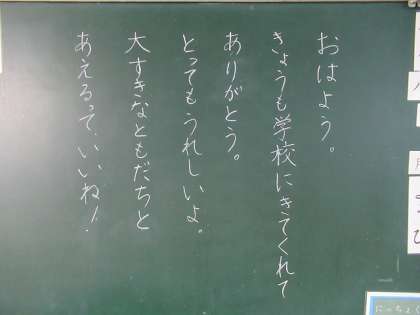 おはよう。
きょうも学校にきてくれて
ありがとう。
とってもうれしいよ。
大すきなともだちと
あえるって、いいね！
にっちょく